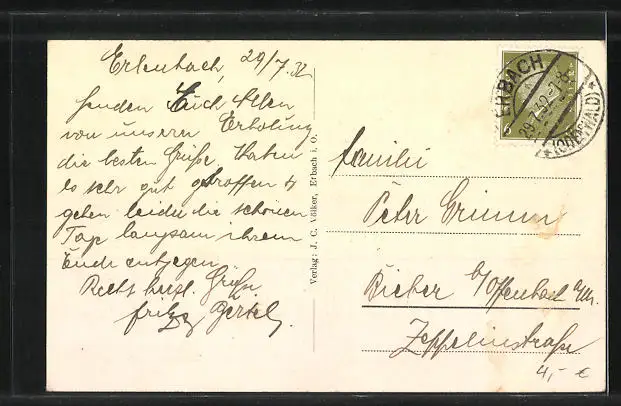 Erlenbach, 29/7.32
Senden Euch Allen
von unserer Erholung
die besten Grüße. Haben
es sehr gut getroffen &
gehen leider die schönen
Tage langsam ihrem
Ende entgegen
Recht herzl. Grüße
Fritz
Verlag: J. C. Völker, Erbach i. O.
ERBACH
29.7.32.
(ODENWALD)
6
Familie
Peter Grimm
Bieber b/Offenbach a/M.
Zeppelinstraße
4,- €